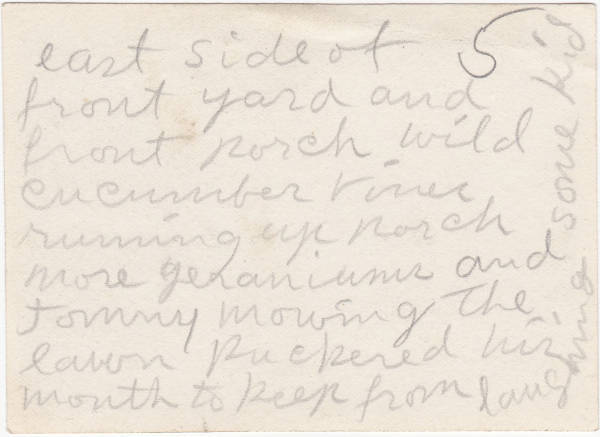 5
east side of
front yard and
front porch wild
cucumber vines
running up porch
more geraniums and
tommy mowing the
lawn puckered his
mouth to keep from laughing some kid